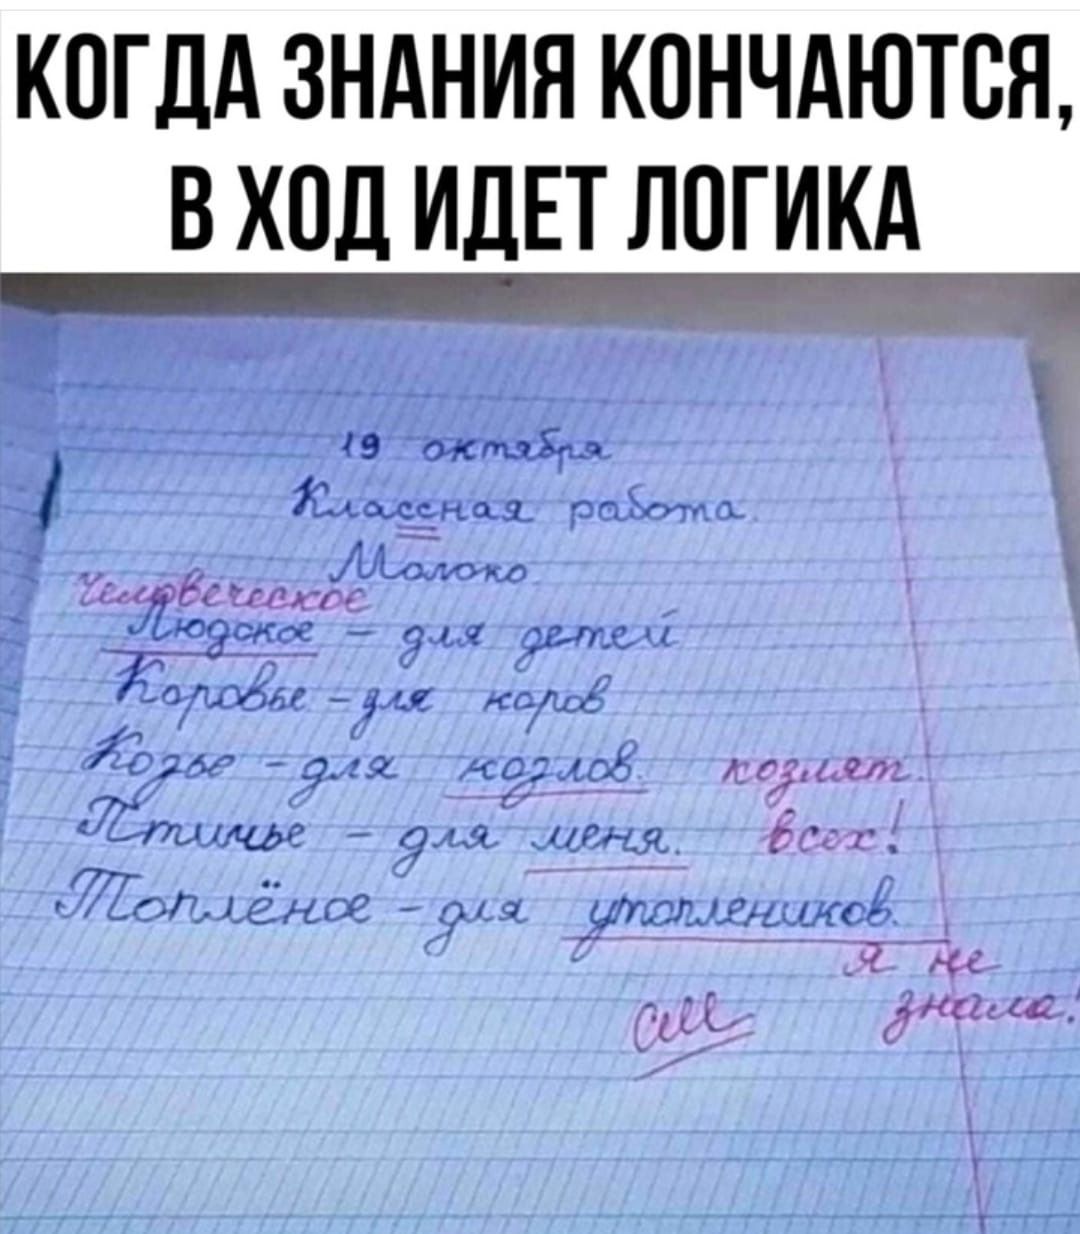 КОГДА ЗНАНИЯ КОНЧАЮТСЯ,
В ХОД ИДЕТ ЛОГИКА
19 октября
Классная работа.
Молоко
Человеческое
Людское – для детей
Коровье – для коров
Козье – для козлов. козлят.
Птичье – для меня. всех!
Топлёное – для утоплеников.
я не
знала!
см